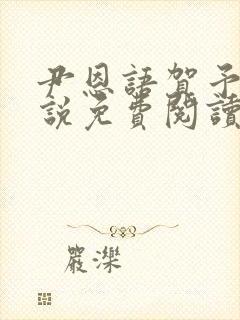 尹恩語賀予
說免費閱讀
嚴濼